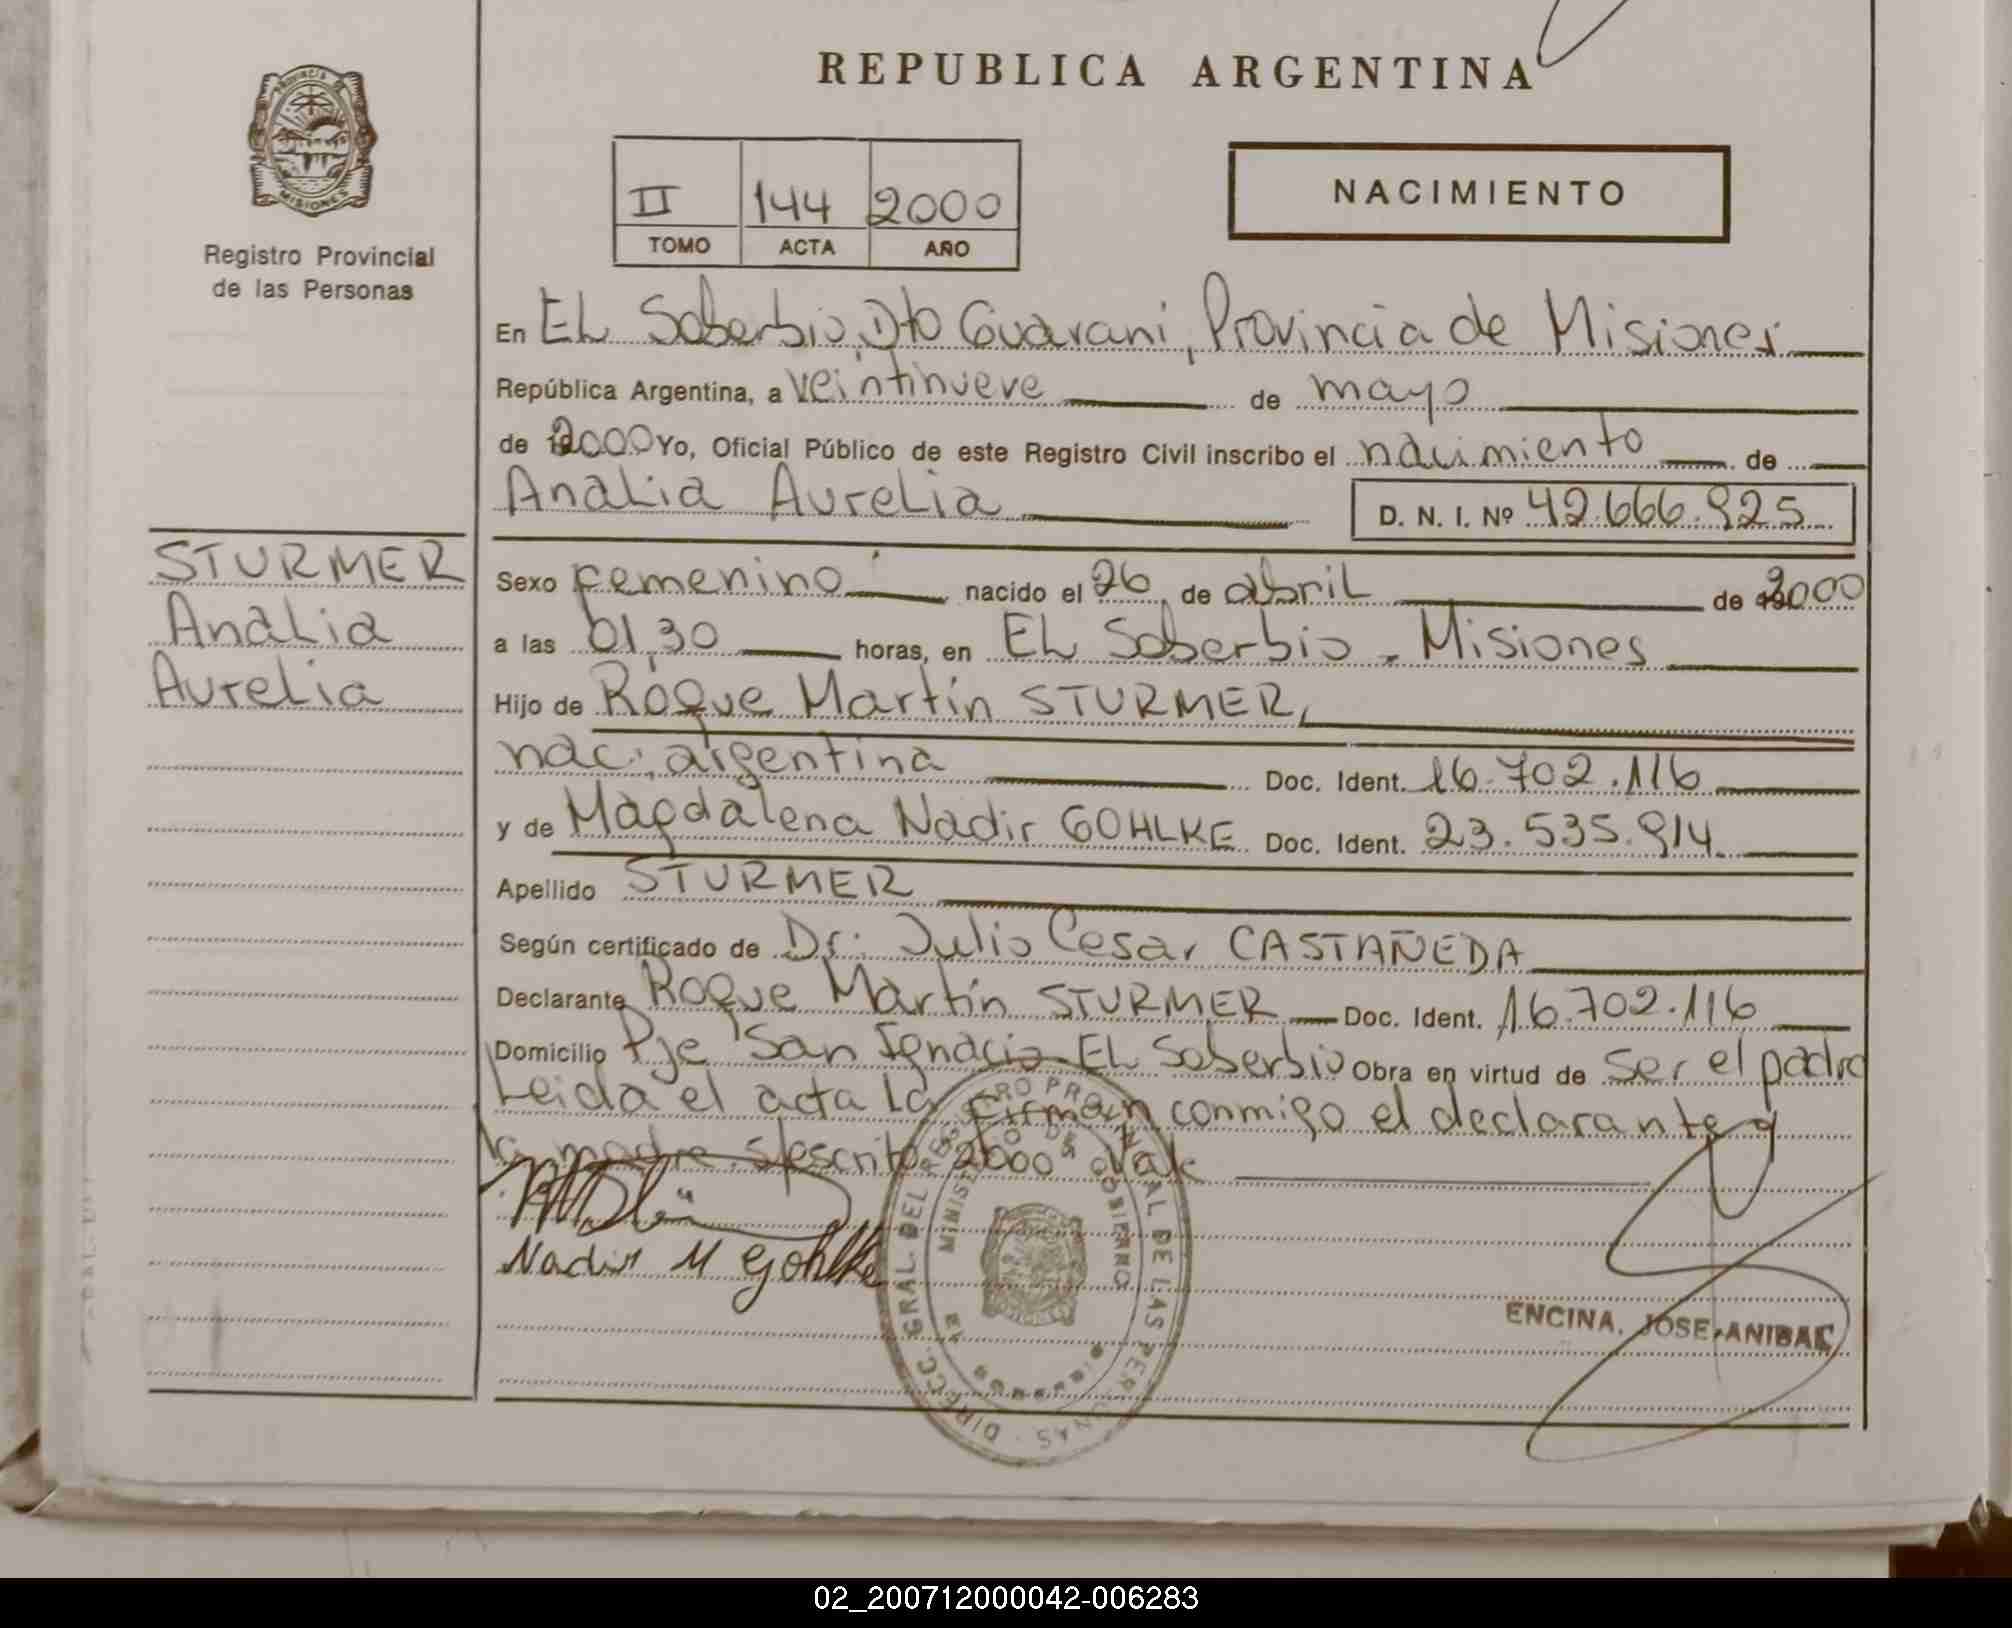 REPUBLICA ARGENTINA
PROVINCIA DE
MISIONES
Registro Provincial
de las Personas
II 144 2000
TOMO ACTA AÑO
NACIMIENTO
En EL Soberbio, Dto Guarani, Provincia de Misiones
República Argentina, a veintinueve de mayo
de 2000 Yo, Oficial Público de este Registro Civil inscribo el nacimiento de
Analia Aurelia D. N. I. Nº 42.666.925
STURMER
Analia
Aurelia
Sexo femenino nacido el 26 de abril de 2000
a las 01,30 horas, en EL Soberbio - Misiones
Hijo de Roque Martín STURMER,
nac. argentina Doc. Ident. 16.702.116
y de Magdalena Nadir GOHLKE Doc. Ident. 23.535.914
Apellido STURMER
Según certificado de Dr. Julio Cesar CASTAÑEDA
Declarante Roque Martín STURMER Doc. Ident. 16.702.116
Domicilio Pje San Ignacio EL Soberbio Obra en virtud de ser el padre
Leida el acta La firman conmigo el declarante y
la madre s/escrito 2000 Vale
Nadir M Gohlke
DIRECC. GRAL. DEL REGISTRO PROVINCIAL DE LAS PERSONAS
MINISTERIO DE GOBIERNO
MISIONES
ENCINA, JOSE ANIBAL
02_200712000042-006283